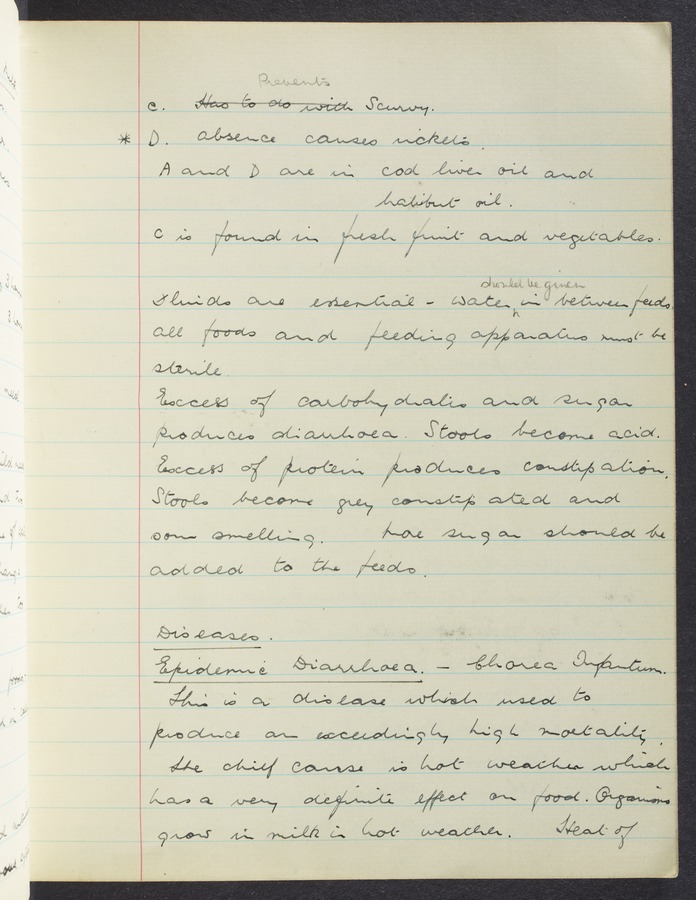 Prevents
c. Has to do with Scurvy.
* D. absence causes rickets.
A and D are in cod liver oil and
halibut oil.
C is found in fresh fruit and vegetables.
should be given
Fluids are essential - Water, in between feeds.
all foods and feeding apparatus must be
sterile.
Excess of carbohydrates and sugar
produces diarrhoea. Stools become acid.
Excess of protein produces constipation.
Stools become grey constipated and
some smelling. more sugar should be
added to the feeds.
Diseases.
Epidemic Diarrhoea. - Chorea Infantum.
This is a disease which used to
produce an exceedingly high mortality.
The chief cause is hot weather which
has a very definite effect on food. Organisms
grow in milk in hot weather. Heat of